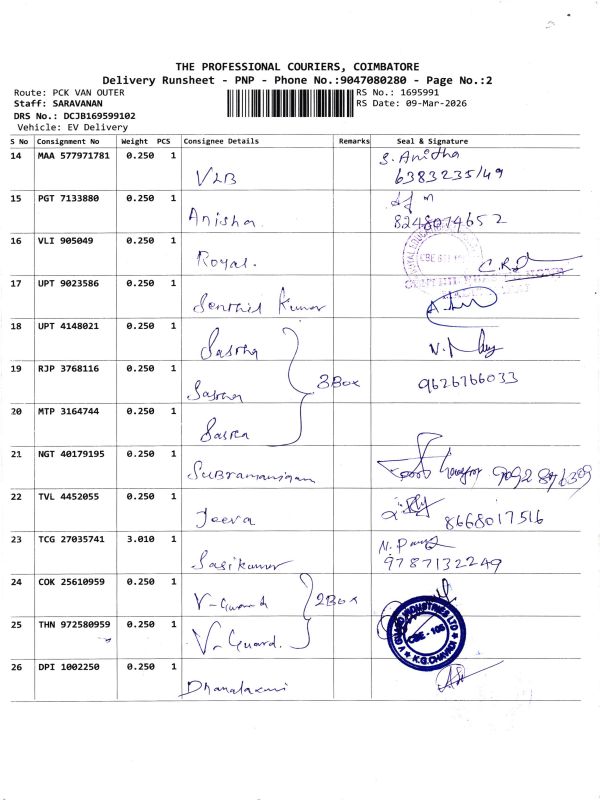 THE PROFESSIONAL COURIERS, COIMBATORE
Delivery Runsheet - PNP - Phone No.:9047080280 - Page No.:2
Route: PCK VAN OUTER
Staff: SARAVANAN
DRS No.: DCJB169599102
Vehicle: EV Delivery
RS No.: 1695991
RS Date: 09-Mar-2026
S No Consignment No Weight PCS Consignee Details Remarks Seal & Signature
14 MAA 577971781 0.250 1 VLB S. Anitha
6383235149
15 PGT 7133880 0.250 1 Anisha.
8248074652
16 VLI 905049 0.250 1 Royal.
17 UPT 9023586 0.250 1 Senthil Kumar
18 UPT 4148021 0.250 1 Sasrha
19 RJP 3768116 0.250 1 Sasrha 3Box 9626766033
20 MTP 3164744 0.250 1
21 NGT 40179195 0.250 1 Subramaniyam
22 TVL 4452055 0.250 1 Jeeva 8668017516
23 TCG 27035741 3.010 1 Sasikumar
9787132249
24 COK 25610959 0.250 1 V-Guard 2Box
25 THN 972580959 0.250 1 V-Guard.
V GUARD INDUSTRIES LTD
CBE - 105
K.G.CHAVADI
26 DPI 1002250 0.250 1 Dhanalaxmi